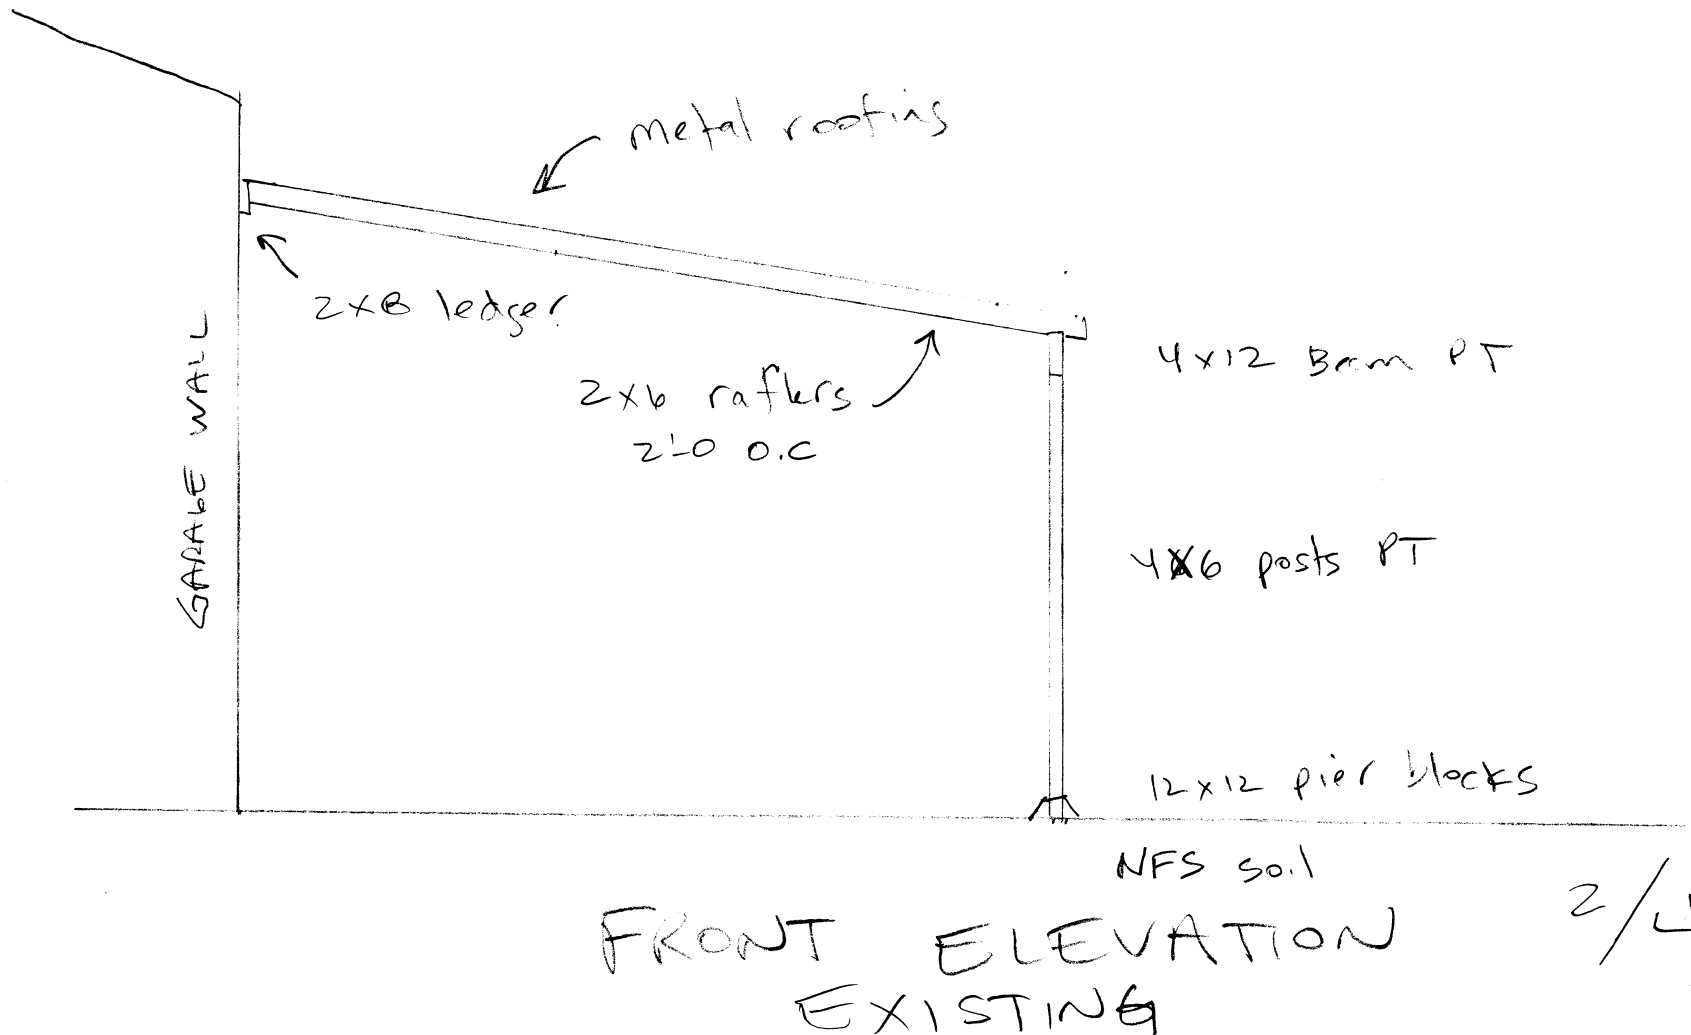 metal roofing
2x8 ledger
2x6 rafters
2'-0 O.C
4x12 Beam PT
GARAGE WALL
4x6 posts PT
12x12 pier blocks
NFS soil
FRONT ELEVATION
EXISTING
2/